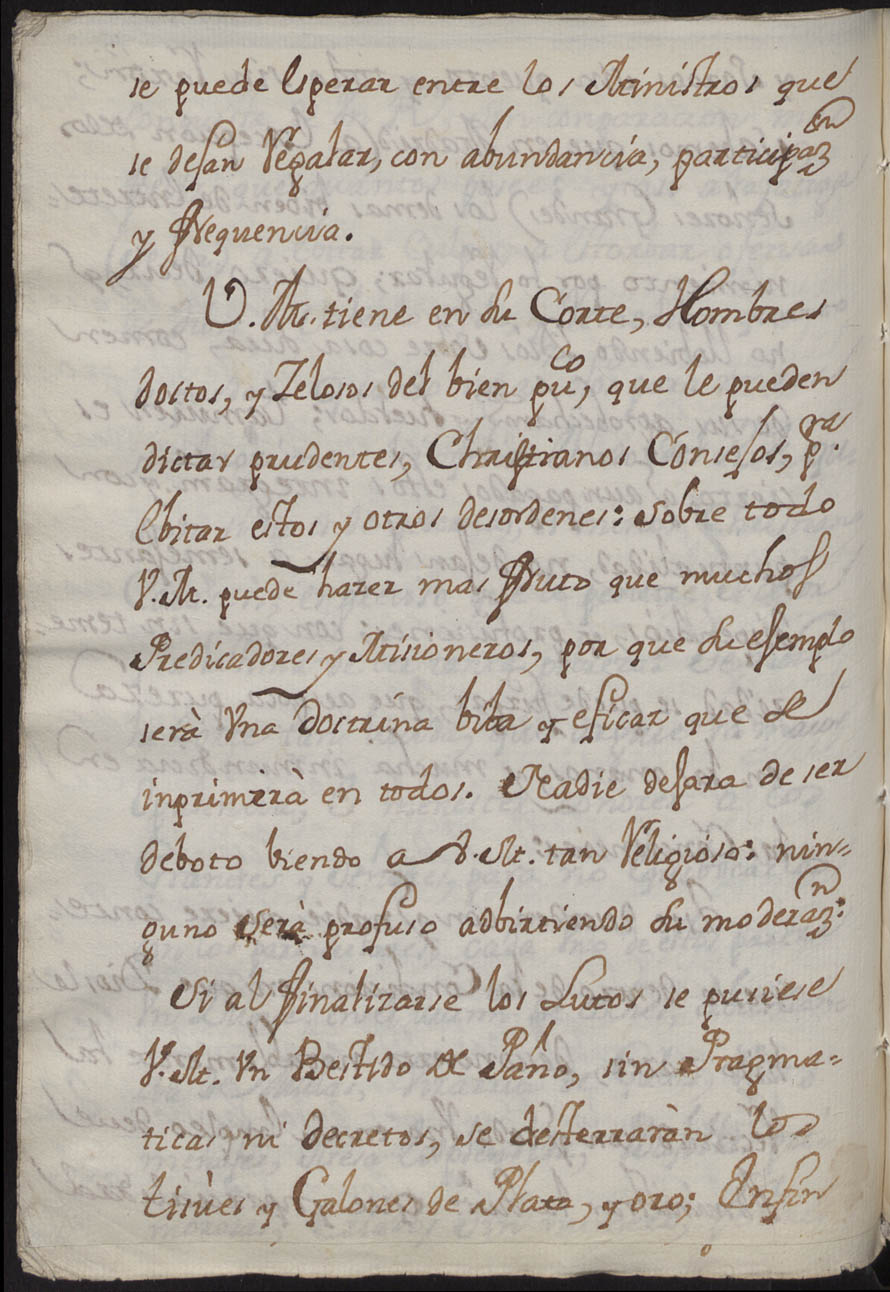 se puede esperar entre los Ministros que
se dejan Regalar, con abundancia, participazen
y frequencia.
V. M. tiene en su Corte, Hombres
doctos, y Zelosos del bien puco, que le pueden
dictar prudentes, Christianos Consejos, pra.
Ebitar estos y otros desordenes: sobre todo
V. M. puede hazer mas fruto que muchos
Predicadores y Misioneros, por que su ejemplo
serà Vna doctrina biba y eficaz que se
inprimirà en todos. Nadie dejara de ser
deboto biendo a V. M. tan Religioso: nin=
guno serà profuso adbirtiendo su moderazn:
Si al finalizarse los Lutos se pusiese
V. M. Vn Bestido de Paño, sin Pragma=
ticas ni decretos, se desterraràn los
tisùes y Galones de Plata, y oro; Enfin